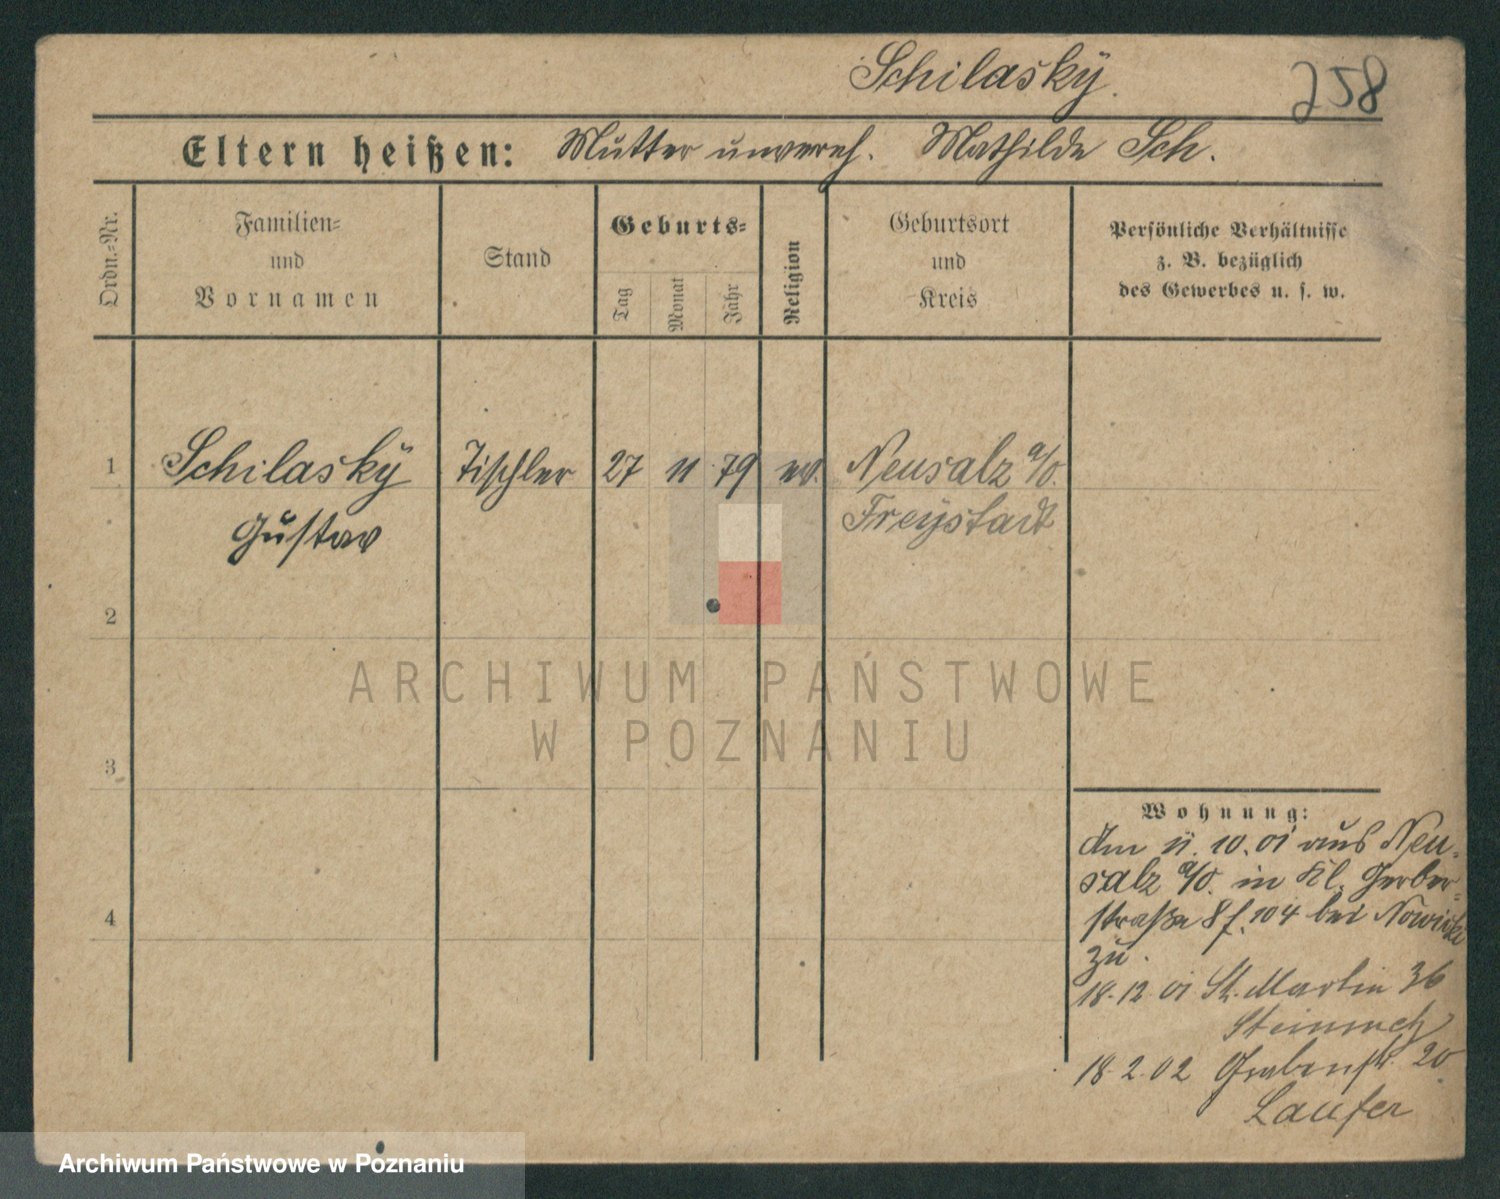 Schilasky.
258
Eltern heißen: Mutter unvereh. Mathilde Sch.
Ordn.-Nr.
Familien-
und
Vornamen
Stand
Geburts-
Tag
Monat
Jahr
Religion
Geburtsort
und
Kreis
Persönliche Verhältnisse
z. B. bezüglich
des Gewerbes u. s. w.
1
Schilasky Tischler 27 11 79 ev. Neusalz a/O.
Gustav
Freystadt
2
3
4
Wohnung:
Am 11.10.01 aus Neu-
salz a/O. in Kl. Gerber-
straße 8 f. 104 bei Nowicki
zu.
18.12.01 St. Martin 36
18.2.02 Grabenstr. 20
Laufer
ARCHIWUM PAŃSTWOWE
W POZNANIU
Archiwum Państwowe w Poznaniu